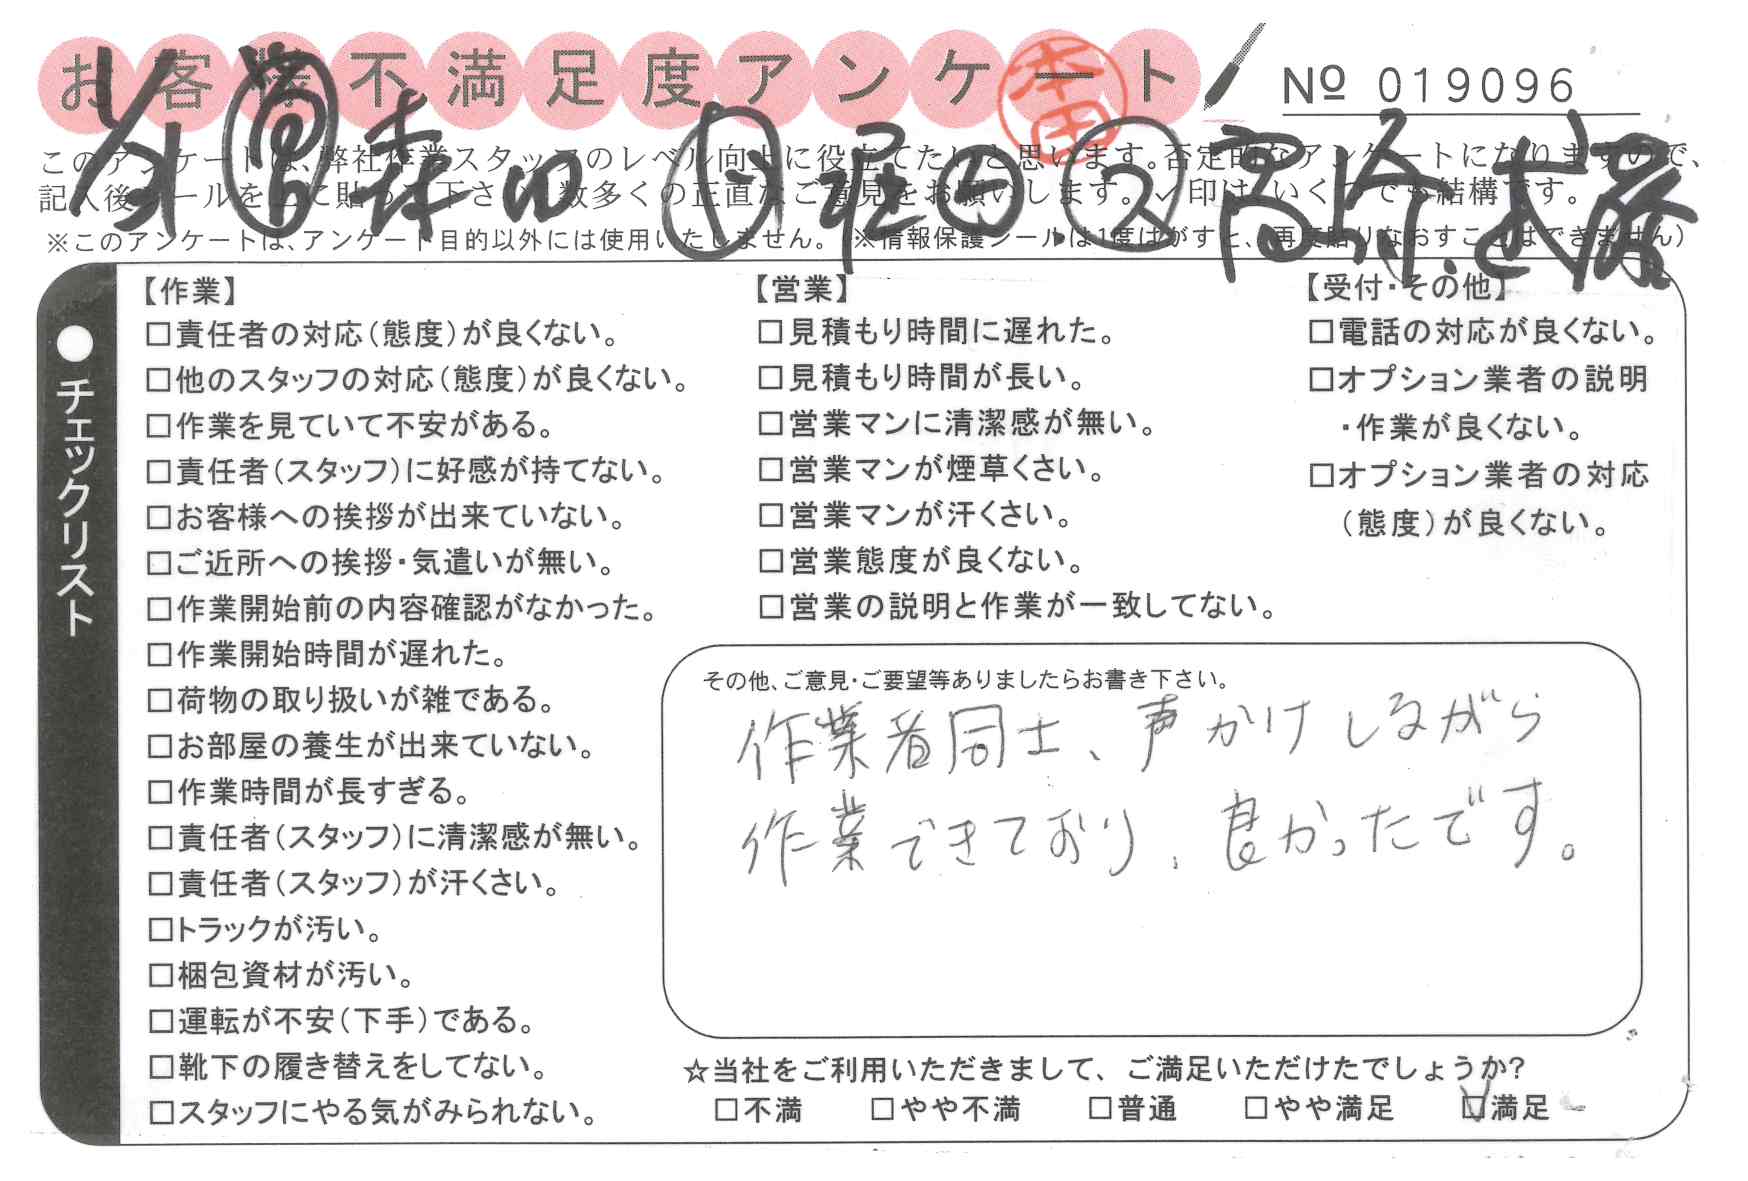 お客様不満足度アンケート
№ 019096
本田
このアンケートは、弊社作業スタッフのレベル向上に役立てたいと思います。否定的なアンケートになりますので、
記入後シールを上に貼って下さい。数多くの正直なご意見をお願いします。✓印は、いくつでも結構です。
※このアンケートは、アンケート目的以外には使用いたしません。(※情報保護シールは1度はがすと、再度貼りなおすことはできません)
チェックリスト
【作業】
□責任者の対応(態度)が良くない。
□他のスタッフの対応(態度)が良くない。
□作業を見ていて不安がある。
□責任者(スタッフ)に好感が持てない。
□お客様への挨拶が出来ていない。
□ご近所への挨拶・気遣いが無い。
□作業開始前の内容確認がなかった。
□作業開始時間が遅れた。
□荷物の取り扱いが雑である。
□お部屋の養生が出来ていない。
□作業時間が長すぎる。
□責任者(スタッフ)に清潔感が無い。
□責任者(スタッフ)が汗くさい。
□トラックが汚い。
□梱包資材が汚い。
□運転が不安(下手)である。
□靴下の履き替えをしてない。
□スタッフにやる気がみられない。
【営業】
□見積もり時間に遅れた。
□見積もり時間が長い。
□営業マンに清潔感が無い。
□営業マンが煙草くさい。
□営業マンが汗くさい。
□営業態度が良くない。
□営業の説明と作業が一致してない。
【受付・その他】
□電話の対応が良くない。
□オプション業者の説明
・作業が良くない。
□オプション業者の対応
(態度)が良くない。
その他、ご意見・ご要望等ありましたらお書き下さい。
作業者同士、声かけしながら
作業できており、良かったです。
☆当社をご利用いただきまして、ご満足いただけたでしょうか?
□不満 □やや不満 □普通 □やや満足 ☑満足